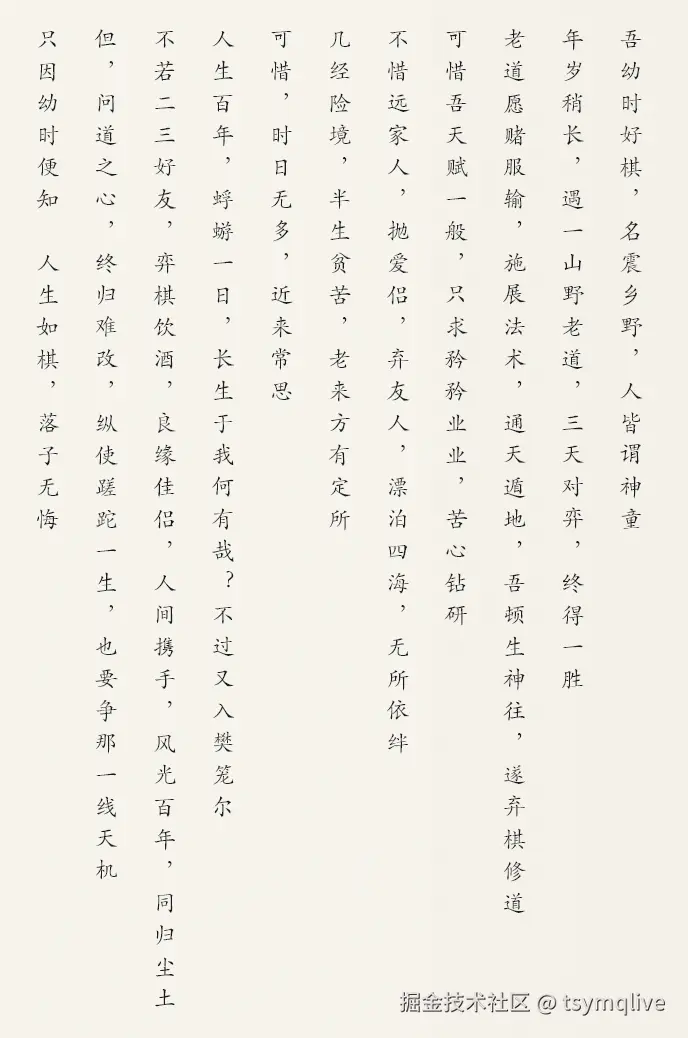 吾幼时好棋，名震乡野，人皆谓神童
年岁稍长，遇一山野老道，三天对弈，终得一胜
老道愿赌服输，施展法术，通天遁地，吾顿生神往，遂弃棋修道
可惜吾天赋一般，只求矜矜业业，苦心钻研
不惜远家人，抛爱侣，弃友人，漂泊四海，无所依绊
几经险境，半生贫苦，老来方有定所
可惜，时日无多，近来常思
人生百年，蜉蝣一日，长生于我何有哉？不过又入樊笼尔
不若二三好友，弈棋饮酒，良缘佳侣，人间携手，风光百年，同归尘土
但，问道之心，终归难改，纵使蹉跎一生，也要争那一线天机
只因幼时便知　人生如棋，落子无悔
掘金技术社区 @ tsymqlive